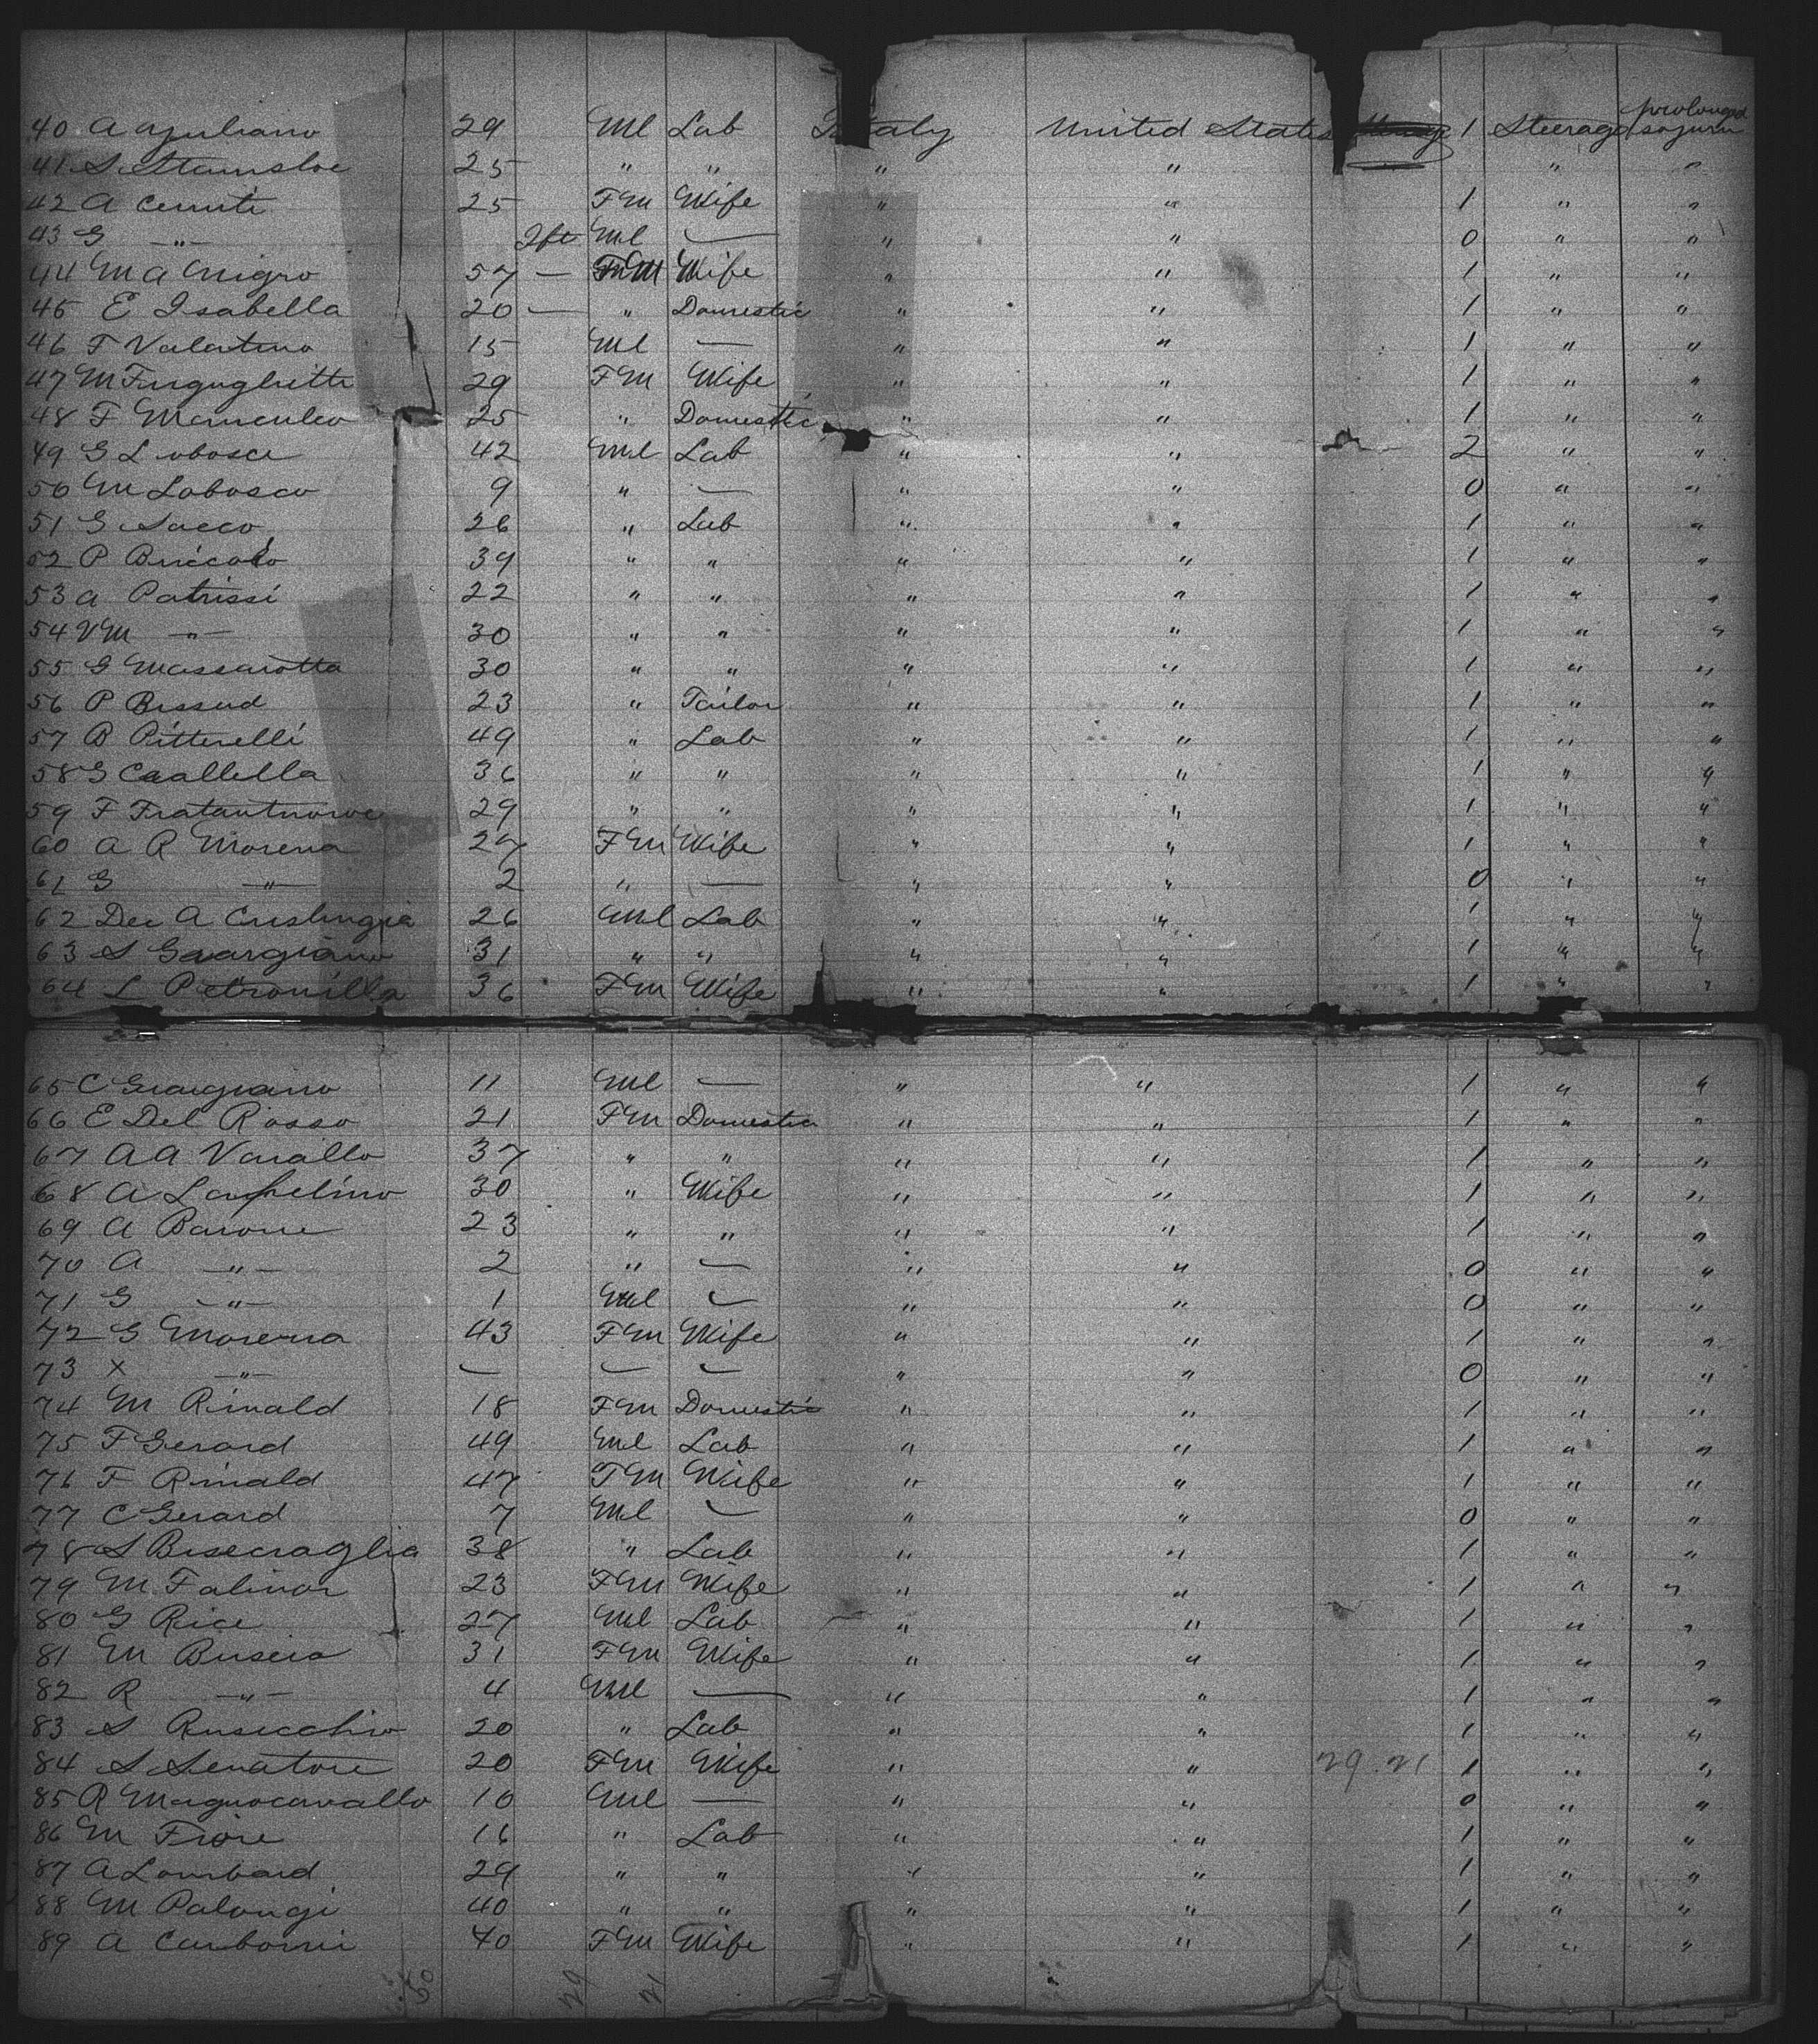 40 A Giuliano 29 Ml Lab Italy United States 1 Steerage prolonged sojourn
41 S 25 " " " " " "
42 A Cerruti 25 Fm Wife " " 1 " "
43 G —"— Ml — " " 0 " "
44 M A Nigro 57 — Fm Wife " " 1 " "
45 E Isabella 20 — " Domestic " " 1 " "
46 F Valentino 15 Ml — " " 1 " "
47 M 29 Fm Wife " " 1 " "
48 F 25 " Domestic " " 1 " "
49 G Lobosce 42 Ml Lab " " 2 " "
50 M Lobosco 9 " — " " 0 " "
51 G Sacco 26 " Lab " " 1 " "
52 P Buccolo 39 " " " " 1 " "
53 A Patrissi 22 " " " " 1 " "
54 V M —"— 30 " " " " 1 " "
55 G Massarotta 30 " " " " 1 " "
56 P Bissud 23 " Tailor " " 1 " "
57 B Pitterelli 49 " Lab " " 1 " "
58 G Caallella 36 " " " " 1 " "
59 F 29 " " " " 1 " "
60 A R Morena 27 Fm Wife " " 1 " "
61 G —"— 2 " — " " 0 " "
62 A 26 Ml Lab " " 1 " "
63 S Gaargiano 31 " " " " 1 " "
64 L Petronilla 36 Fm Wife " " 1 " "
65 C Giargiano 11 Ml — " " 1 " "
66 E Del Rosso 21 Fm Domestic " " 1 " "
67 A A Varallo 37 " " " " 1 " "
68 A 30 " Wife " " 1 " "
69 A Barone 23 " " " " 1 " "
70 A —"— 2 " — " " 0 " "
71 G —"— 1 Ml — " " 0 " "
72 G Morena 43 Fm Wife " " 1 " "
73 X —"— — — — " " 0 " "
74 M Rinald 18 Fm Domestic " " 1 " "
75 F Gerard 49 Ml Lab " " 1 " "
76 F Rinald 47 Fm Wife " " 1 " "
77 C Gerard 7 Ml — " " 0 " "
78 S Bisecraglia 38 " Lab " " 1 " "
79 M Falinor 23 Fm Wife " " 1 " "
80 G Rice 27 Ml Lab " " 1 " "
81 M Buseio 31 Fm Wife " " 1 " "
82 R —"— 4 Ml — " " 1 " "
83 S Rusicchio 20 " Lab " " 1 " "
84 S Senatore 20 Fm Wife " " 29 21 1 " "
85 R Magnocavallo 10 Ml — " " 0 " "
86 M Fiore 16 " Lab " " 1 " "
87 A Lombard 29 " " " " 1 " "
88 M Palongi 40 " " " " 1 " "
89 A Carbonni 40 Fm Wife " " 1 " "
50 29 21